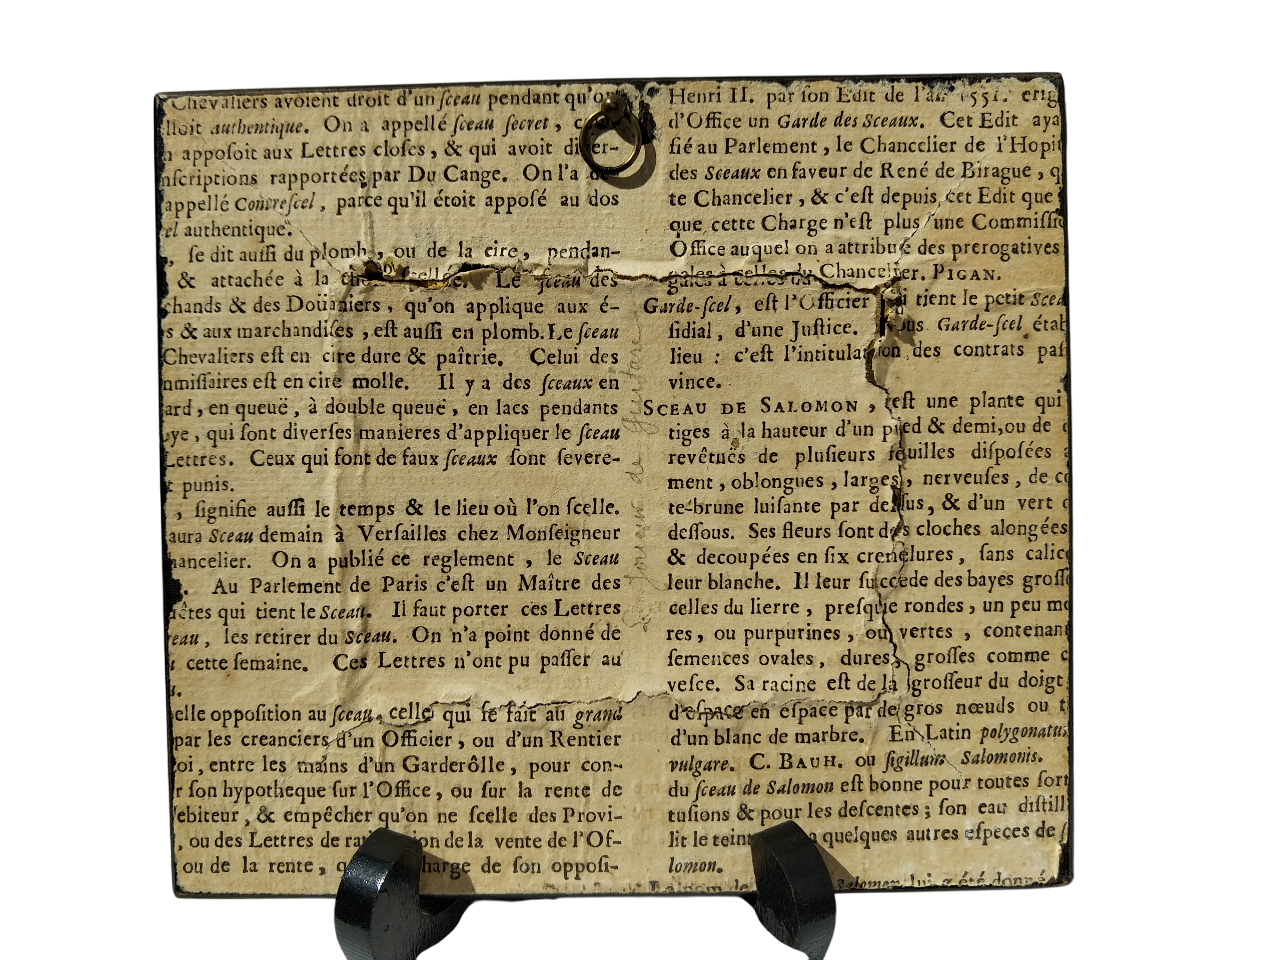 Chevaliers avoient droit d'un ſceau pendant qu'on
authentique. On a appellé ſceau ſecret,
appoſoit aux Lettres cloſes, & qui avoit
rapportées par Du Cange. On l'a
appellé Contreſcel, parce qu'il étoit appoſé au dos
authentique.
, ſe dit auſſi du plomb, ou de la cire, pendan-
& attachée à la Le ſceau des
& des Doüaniers, qu'on applique aux é-
& aux marchandiſes, eſt auſſi en plomb. Le ſceau
Chevaliers eſt en cire dure & paîtrie. Celui des
eſt en cire molle. Il y a des ſceaux en
, en queuë, à double queuë, en lacs pendants
, qui ſont diverſes manieres d'appliquer le ſceau
Lettres. Ceux qui font de faux ſceaux ſont ſevere-
punis.
, ſignifie auſſi le temps & le lieu où l'on ſcelle.
aura Sceau demain à Verſailles chez Monſeigneur
. On a publié ce reglement, le Sceau
. Au Parlement de Paris c'eſt un Maître des
qui tient le Sceau. Il faut porter ces Lettres
, les retirer du Sceau. On n'a point donné de
cette ſemaine. Ces Lettres n'ont pu paſſer au
oppoſition au ſceau, celle qui ſe fait au grand
par les creanciers d'un Officier, ou d'un Rentier
, entre les mains d'un Garderôlle, pour con-
ſon hypotheque ſur l'Office, ou ſur la rente de
, & empêcher qu'on ne ſcelle des Provi-
, ou des Lettres de de la vente de l'Of-
ou de la rente, de ſon oppoſi-
Henri II. par ſon Edit de l'an 1551.
d'Office un Garde des Sceaux. Cet Edit
au Parlement, le Chancelier de l'
des Sceaux en faveur de René de Birague,
te Chancelier, & c'eſt depuis cet Edit que
que cette Charge n'eſt plus une
Office auquel on a attribué des prerogatives
gales à celles du Chancelier. PIGAN.
Garde-ſcel, eſt l'Officier qui tient le petit
ſidial, d'une Juſtice. Garde-ſcel
lieu : c'eſt l'intitulation des contrats
vince.
SCEAU DE SALOMON, eſt une plante qui
tiges à la hauteur d'un pied & demi, ou de
revêtuës de pluſieurs feuilles diſpoſées
ment, oblongues, larges, nerveuſes, de
te-brune luiſante par deſſus, & d'un vert
deſſous. Ses fleurs ſont des cloches alongées
& decoupées en ſix crenelures, ſans
leur blanche. Il leur ſuccede des bayes
celles du lierre, preſque rondes, un peu
res, ou purpurines, ou vertes,
ſemences ovales, dures, groſſes comme
veſce. Sa racine eſt de la groſſeur du doigt
d'eſpace en eſpace par de gros nœuds ou
d'un blanc de marbre. En Latin
vulgare. C. BAUH. ou ſigillum Salomonis.
du ſceau de Salomon eſt bonne pour toutes
tuſions & pour les deſcentes ; ſon eau
lit le teint quelques autres eſpeces de
lomon.